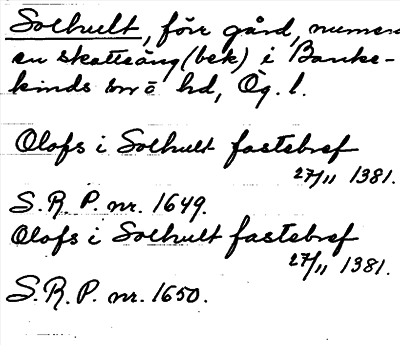 Solhult, förr gård, numera
en skatteäng (bek) i Banke-
kinds sn o hd, Ög. l.
Olofs i Solhult fastebref
27/11 1381.
S. R. P. nr. 1649.
Olofs i Solhult fastebref
27/11 1381.
S. R. P. nr. 1650.